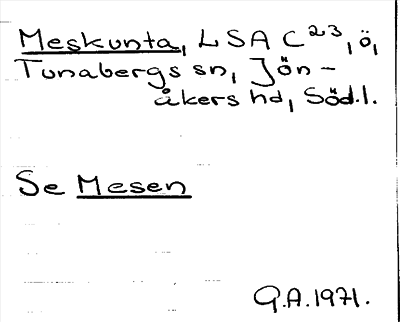 Meskunta, LSA C²³, ö,
Tunabergs sn, Jön-
åkers hd, Söd.l.
Se Mesen
G.A. 1971.